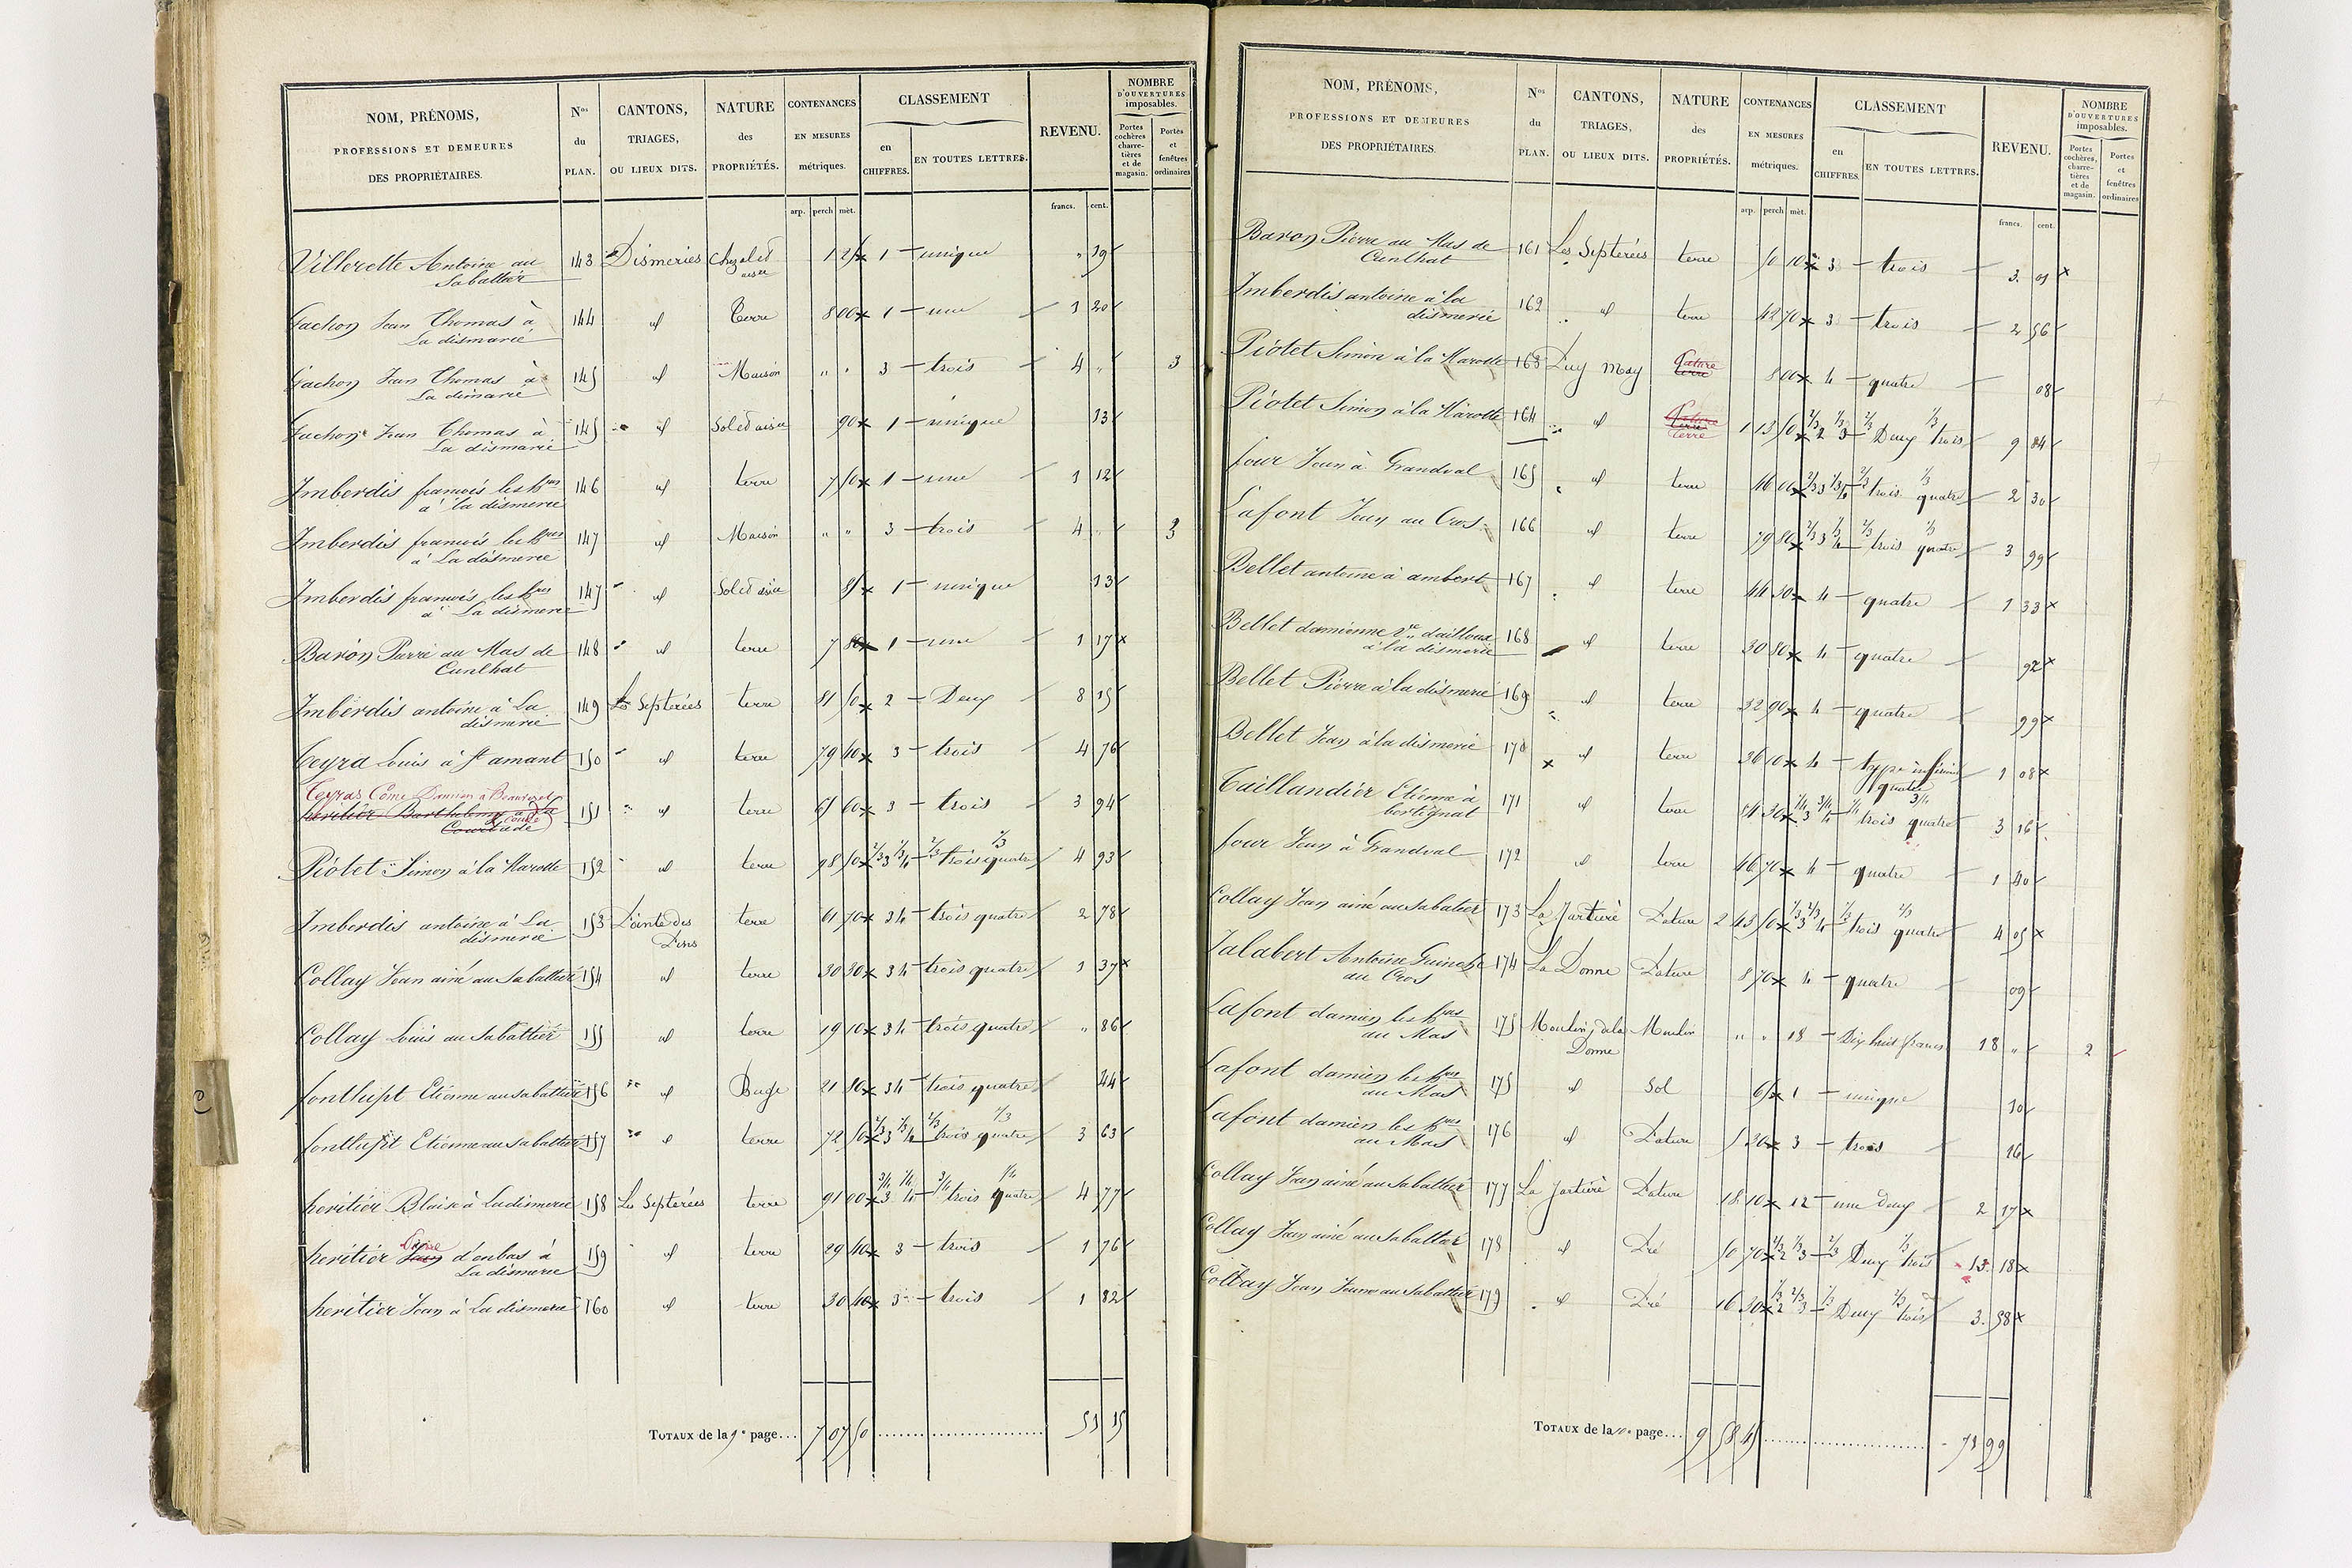 NOM, PRÉNOMS, PROFESSIONS ET DEMEURES DES PROPRIÉTAIRES. Nos du PLAN. CANTONS, TRIAGES, OU LIEUX DITS. NATURE des PROPRIÉTÉS. CONTENANCES EN MESURES métriques. CLASSEMENT en CHIFFRES. EN TOUTES LETTRES. REVENU. NOMBRE D'OUVERTURES imposables. Portes cochères, charretières et de magasin. Portes et fenêtres ordinaires
arp. perch mèt. francs. cent.
Villerette Antoine au 143 Dismeries 1 25 1 unique " 19
Sabattier
Gachon Jean Thomas à 144 id Terre 8 00 1 une 1 20
La dismerie
Gachon Jean Thomas à 145 id Maison " " 3 trois 4 " 3
La dimarie
Gachon Jean Thomas à 145 id Sol et aisee 90 1 unique 13
La dismarie
Imberdis francois les hres 146 id terre 7 50 1 une 1 12
à la dismerie
Imberdis francois les hres 147 id Maison " " 3 trois 4 " 3
à La dismerie
Imberdis francois les hres 147 id Sol et aisee 85 1 unique 13
à La dismerie
Baron Pierre au Mas de 148 id terre 7 80 1 une 1 17
Cunlhat
Imberdis antoine à La 149 Les Septerées terre 81 50 2 Deux 8 15
dismerie
Teyra Louis à St amant 150 id terre 79 40 3 trois 4 76
Teyras Come Damien à Beaurozet
heritier Barthelemy à la 151 id terre 65 60 3 trois 3 94
Courtade
Piotet Simon à la Marotte 152 id terre 98 50 2/3 3 1/3 4 2/3 trois 1/3 quatre 4 93
Imberdis antoine à La 153 Pointe des terre 61 70 3 4 trois quatre 2 78
dismerie Pins
Collay Jean ainé au Sabattier 154 id terre 30 30 3 4 trois quatre 1 37
Collay Louis au Sabattier 155 id terre 19 10 3 4 trois quatre " 86
fontlupt Etienne au Sabattier 156 id Buge 21 80 3 4 trois quatre 44
fontlupt Etienne au Sabattier 157 id terre 72 50 2/3 3 1/3 4 2/3 trois 1/3 quatre 3 63
heritier Blaise à La dismerie 158 Les Septerées terre 91 00 3/4 3 1/4 4 3/4 trois 1/4 quatre 4 77
heritier Jean Pierre d'enbas à 159 id terre 29 40 3 trois 1 76
La dismerie
heritier Jean à La dismerie 160 id terre 30 40 3 trois 1 82
TOTAUX de la 9e page... 7 07 50 51 15
NOM, PRÉNOMS, PROFESSIONS ET DEMEURES DES PROPRIÉTAIRES. Nos du PLAN. CANTONS, TRIAGES, OU LIEUX DITS. NATURE des PROPRIÉTÉS. CONTENANCES EN MESURES métriques. CLASSEMENT en CHIFFRES. EN TOUTES LETTRES. REVENU. NOMBRE D'OUVERTURES imposables. Portes cochères, charretières et de magasin. Portes et fenêtres ordinaires
arp. perch mèt. francs. cent.
Baron Pierre au Mas de 161 Les Septerées terre 50 10 3 trois 3 01
Cunlhat
Imberdis antoine à la 162 id terre 42 70 3 trois 2 56
dismerie
Piotet Simon à la Marotte 163 Puy May Pature terre 8 00 4 quatre 08
Piotet Simon à la Marotte 164 id Pature terre 1 13 50 2/3 2 1/3 3 2/3 Deux 1/3 trois 9 84
four Jean à Grandval 165 id terre 46 00 2/3 3 1/3 4 2/3 trois 1/3 quatre 2 30
Lafont Jean au Cros 166 id terre 79 80 2/3 3 1/3 4 2/3 trois 1/3 quatre 3 99
Bellet antoine à ambert 167 id terre 44 30 4 quatre 1 33
Bellet damienne ve dailloux 168 id terre 30 80 4 quatre 92
à la dismerie
Bellet Pierre à la dismerie 169 id terre 32 90 4 quatre 99
Bellet Jean à la dismerie 170 id terre 36 10 4 type inférieur 1 08
quatre
Taillandier Etienne à 171 id terre 54 30 1/4 3 3/4 4 1/4 trois 3/4 quatre 3 16
bertignat
four Jean à Grandval 172 id terre 46 70 4 quatre 1 40
Collay Jean ainé au Sabatier 173 La Jartiere Pature 2 43 50 1/3 3 2/3 4 1/3 trois 2/3 quatre 4 05
Jalabert Antoine 174 La Donne Pature 8 70 4 quatre 09
au Cros
Lafont damien les hres 175 Moulin de la Moulin " " 18 Dix huit francs 18 " 2
au Mas Donne
Lafont damien les hres 175 id Sol 65 1 unique 10
au Mas
Lafont damien les hres 176 id Pature 5 20 3 trois 16
au Mas
Collay Jean ainé au Sabattier 177 La Jartiere Pature 18 10 1 2 une deux 2 17
Collay Jean ainé au Sabattier 178 id Pré 50 70 2/3 2 1/3 3 2/3 Deux 1/3 trois 13 18
Collay Jean Jeune au Sabattier 179 id Pré 16 30 1/3 2 2/3 3 1/3 Deux 2/3 trois 3 58
TOTAUX de la 10e page... 9 58 45 73 99